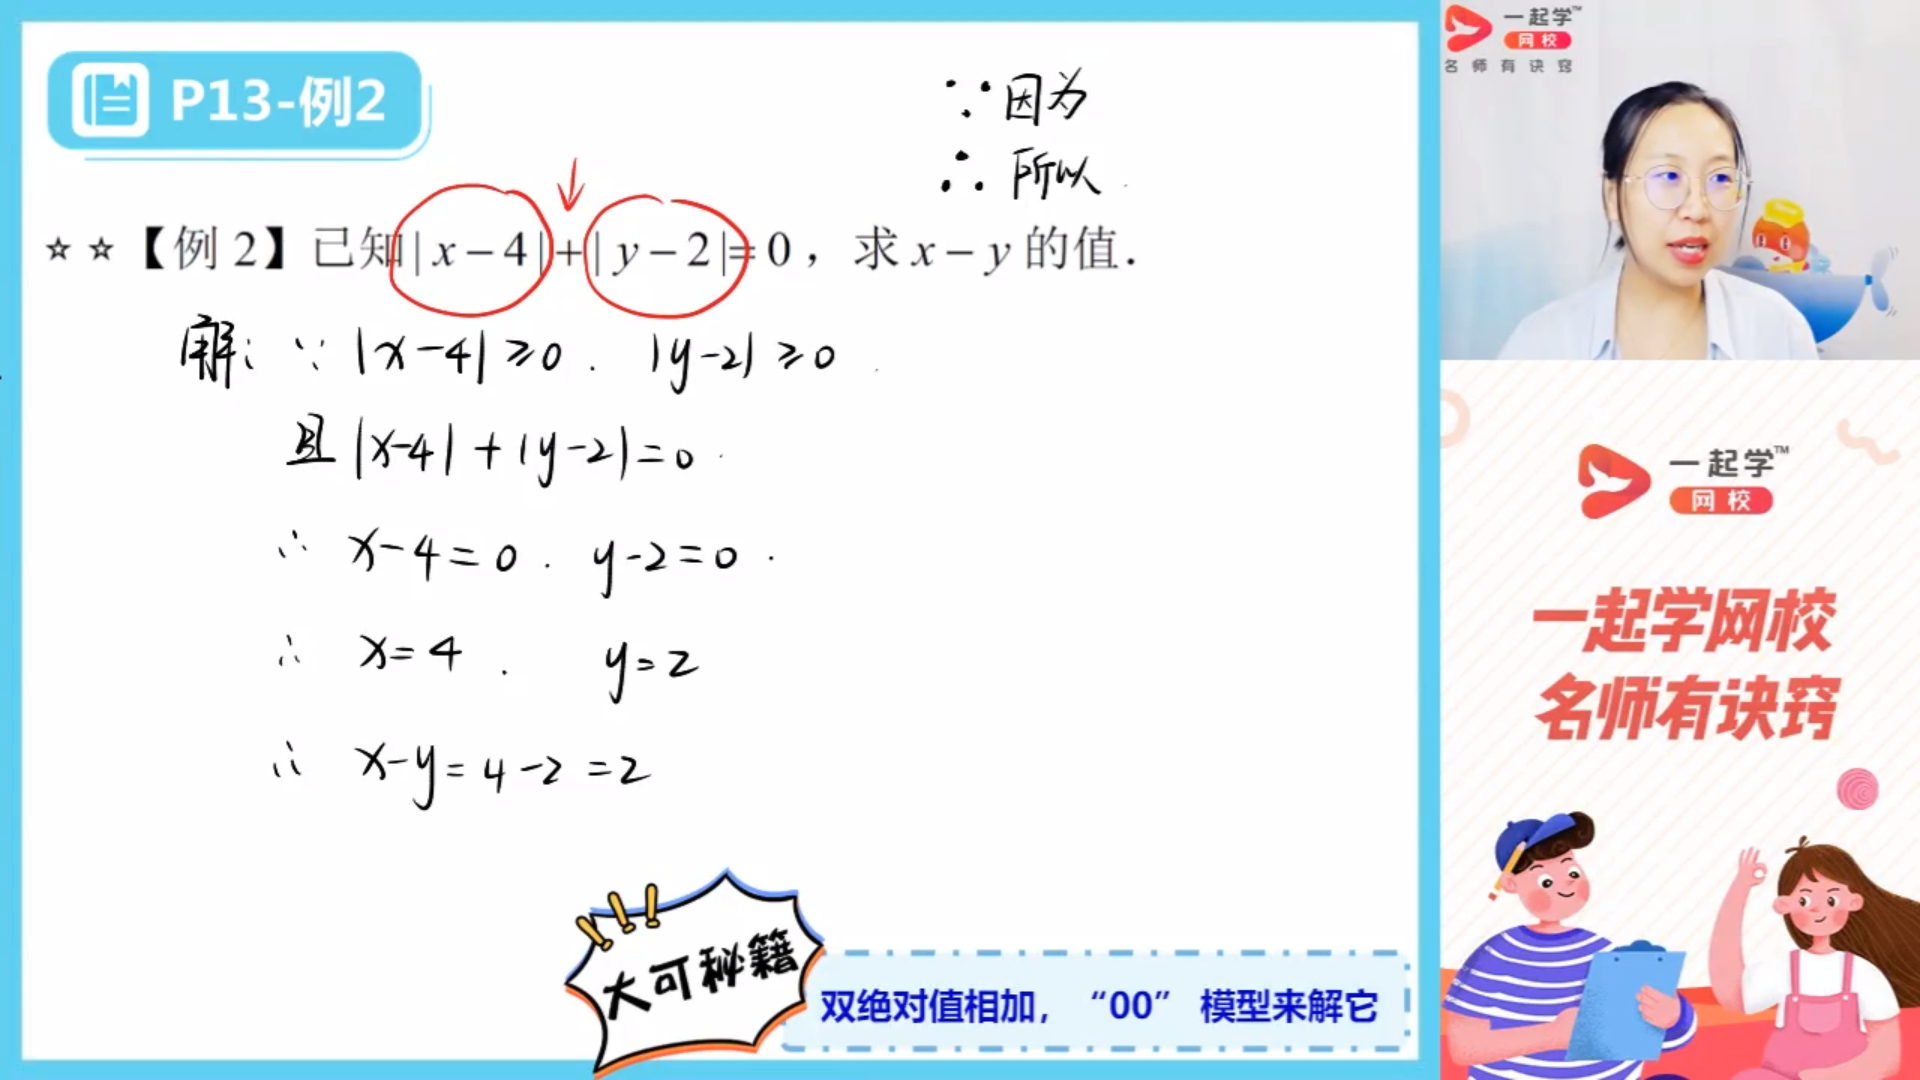 P13-例2
∵ 因为
∴ 所以
☆☆【例 2】已知|x-4|+|y-2|=0，求x-y的值.
解: ∵ |x-4|≥0. |y-2|≥0
且|x-4|+|y-2|=0
∴ x-4=0. y-2=0.
∴ x=4. y=2
∴ x-y=4-2=2
大可秘籍
双绝对值相加，“00”模型来解它
一起学™
网校
名师有诀窍
一起学™
网校
一起学网校
名师有诀窍